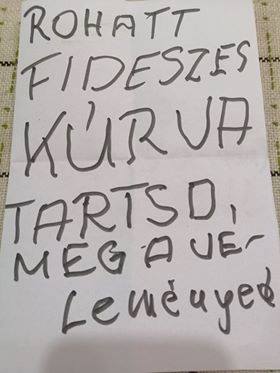 ROHATT
FIDESZES
KÚRVA
TARTSD,
MEG A VE-
Leményed